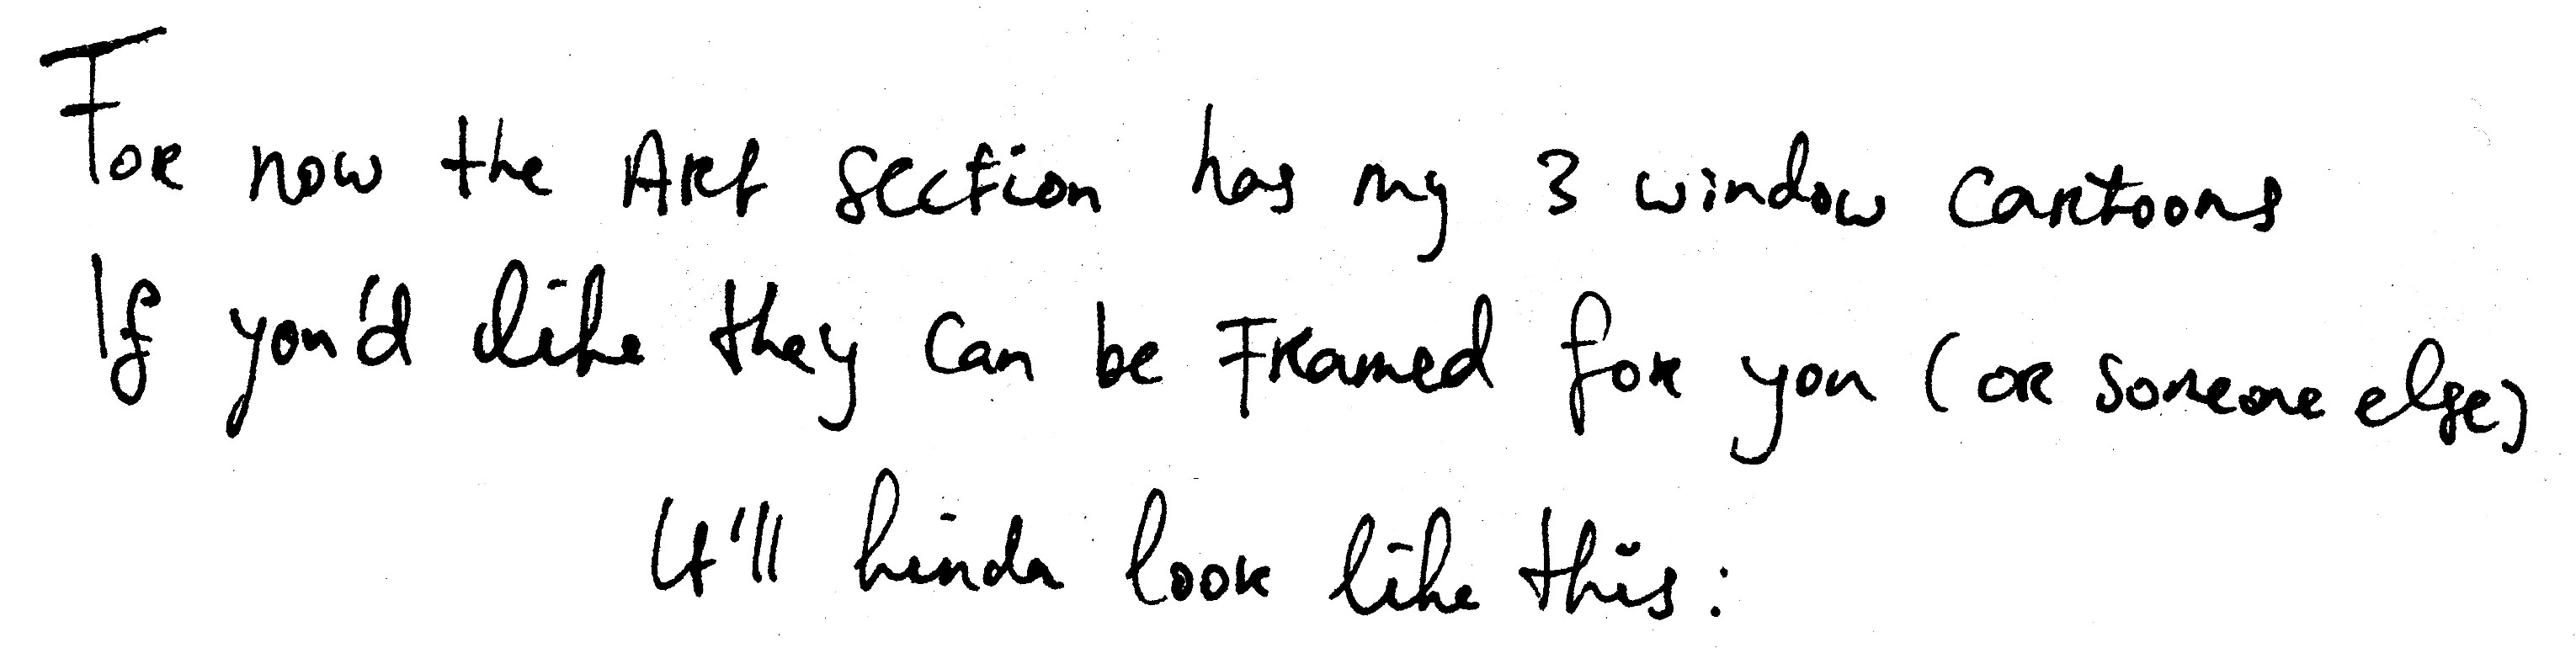 For now the Art section has my 3 window cartoons
If you'd like they can be Framed for you (or someone else)
It'll kinda look like this: